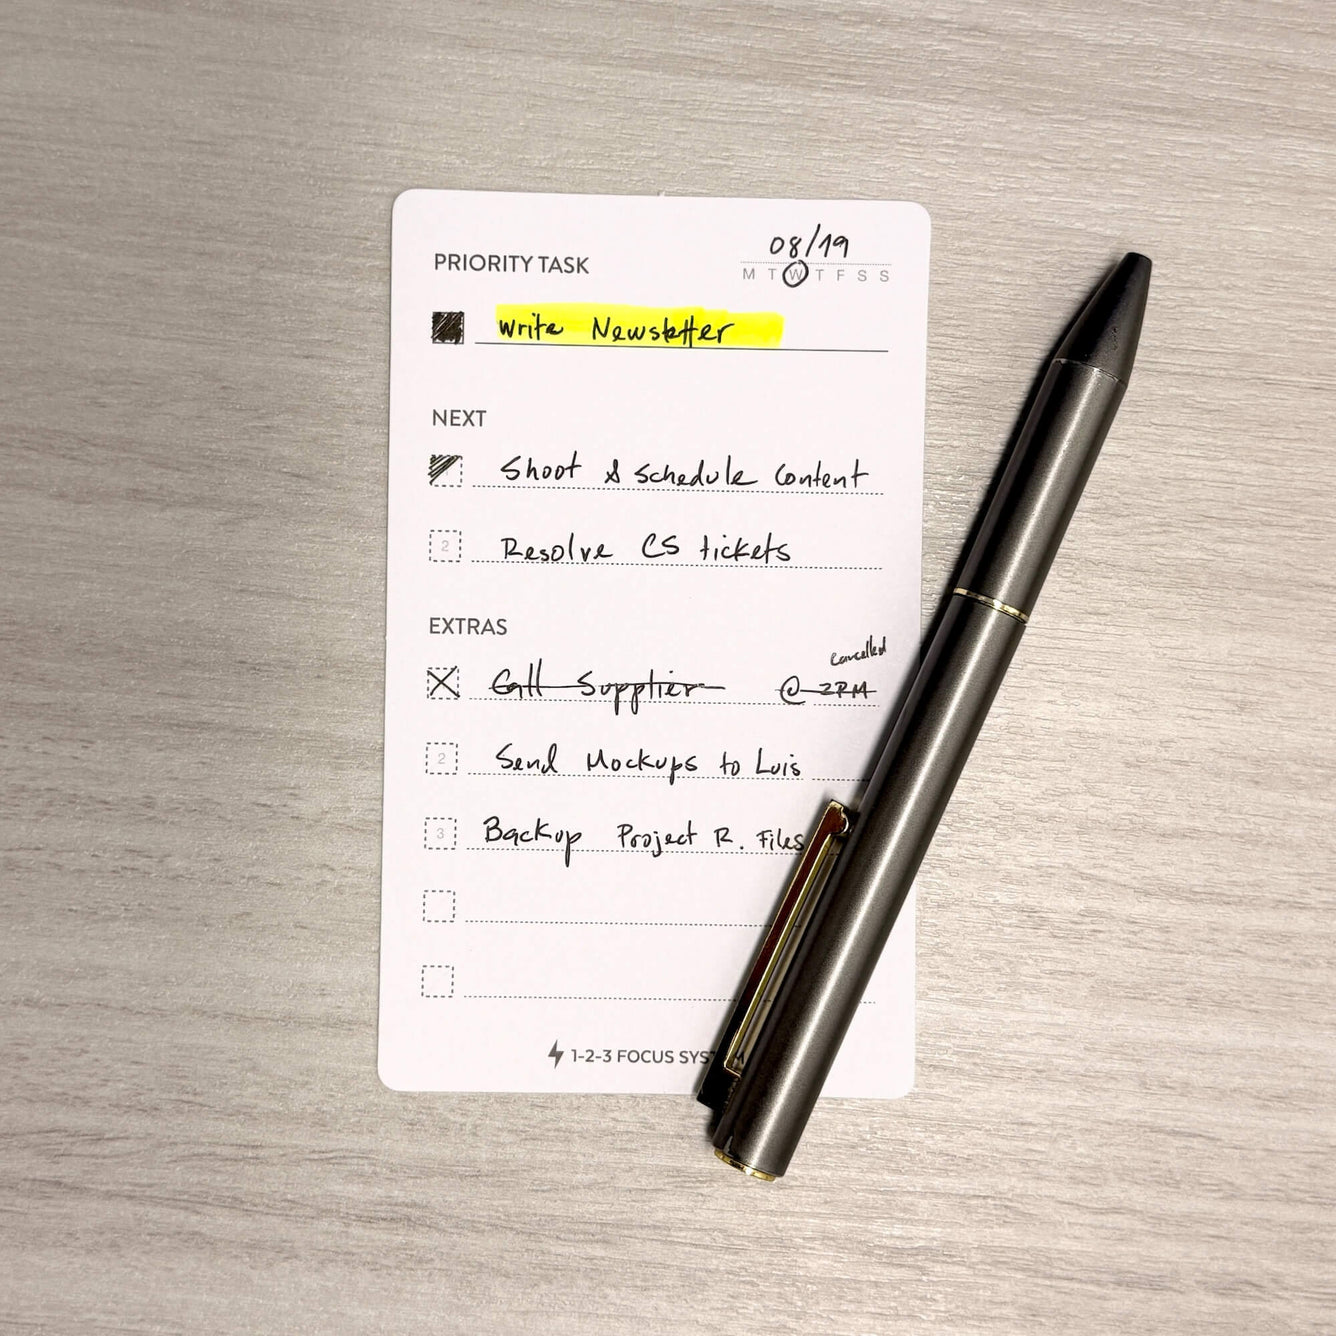 08/19
PRIORITY TASK
M T W T F S S
write Newsletter
NEXT
Shoot & Schedule Content
2 Resolve CS tickets
EXTRAS
cancelled
Call Supplier @ 2PM
2 Send Mockups to Luis
3 Backup Project R. Files
1-2-3 FOCUS SYSTEM